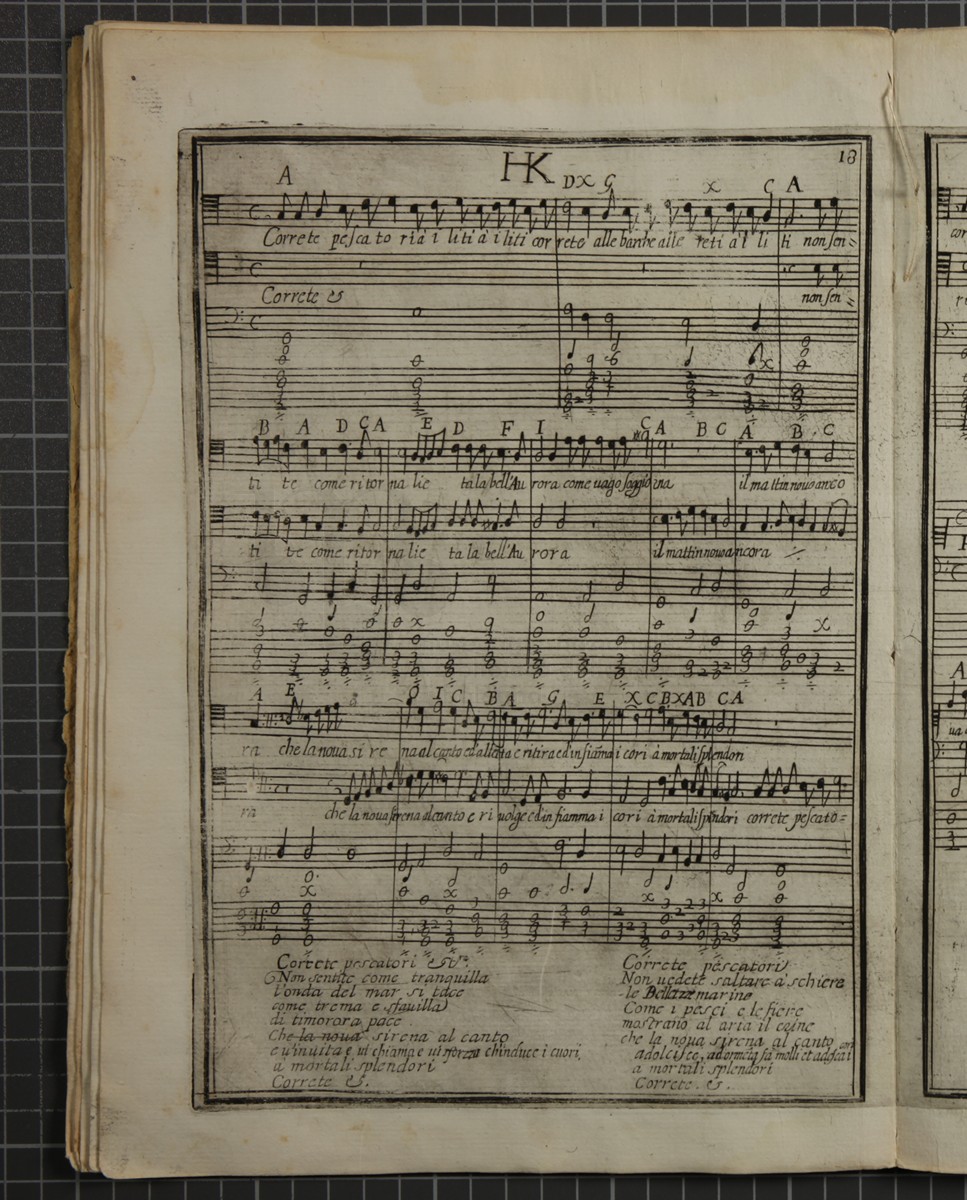 HK
18
A DX G X C A
Correte pesca to ri à i liti à i liti cor rete alle barche alle reti a i li ti non sen=
Correte &
non sen=
B A D C A E D F I C A B C A B C
ti te come ritor na lie ta la bell'Au rora come uago soggiorna il mattin nouo anco
ti te come ritor na lie ta la bell'Au rora il mattin nouo ancora
A E O I C B A G E X C B X A B C A
ra che la noua si re na al canto ed alletta e ritira ed in fiãma i cori à mortali splendori
ra che la noua sirena al canto e ri uolge ed in fiamma i cori à mortali splendori correte pescato=
Correte pescatori &.
Non sentite come tranquilla
l'onda del mar si tace
come trema e sfauilla
di timorara pace
Che la noua sirena al canto
e u'inuita e ui chiama e ui sforza ch'induce i cuori
a mortali splendori
Correte &.
Correte pescatori
Non uedete saltare à schiera
le Bellezze marine
Come i pesci e le fiere
mostrano al aria il crine
che la noua sirena al canto
adolcisce, adormeta fà molli et addita i cori
a mortali splendori
Correte. &.